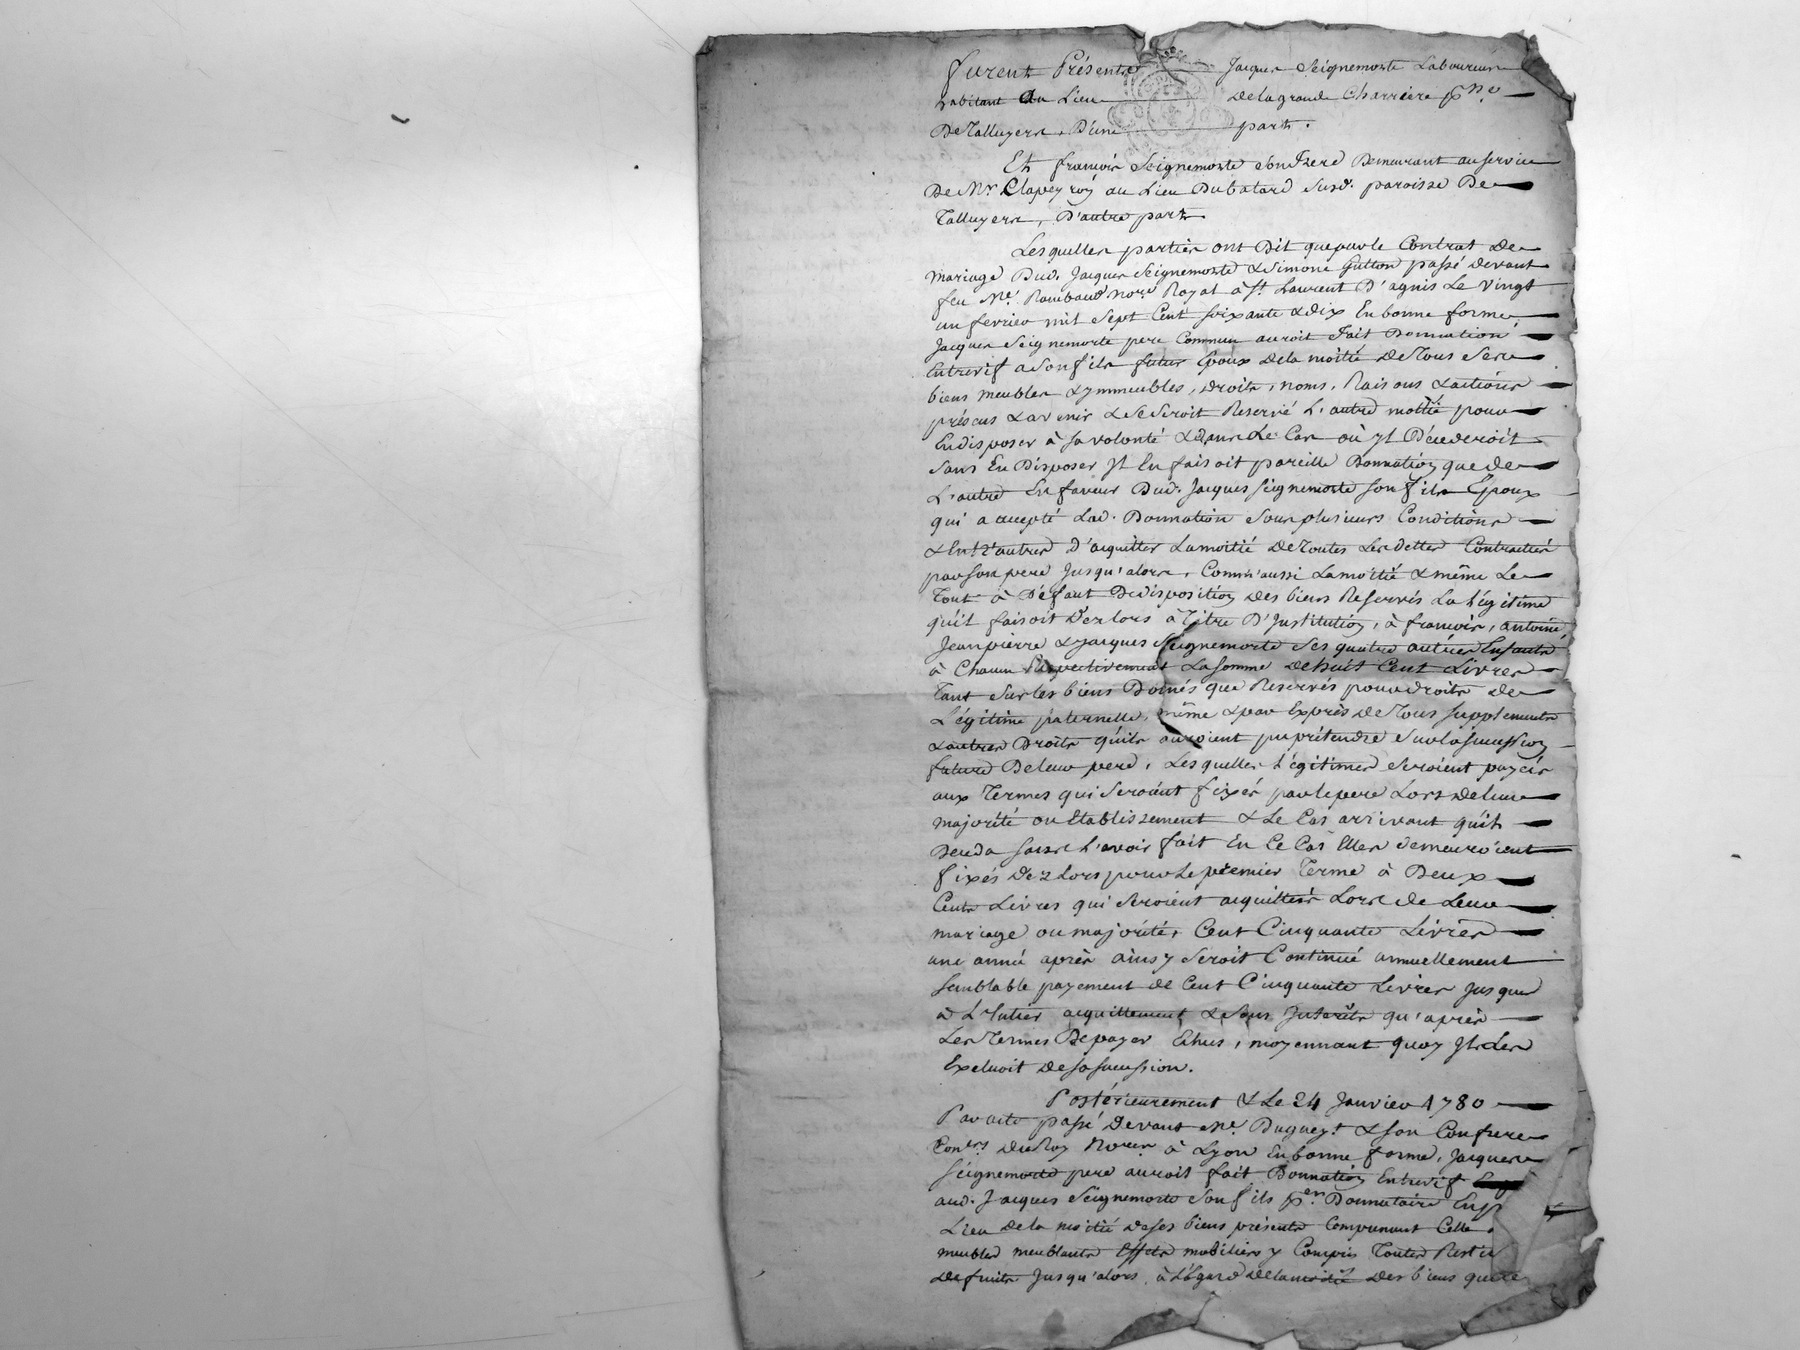 furent Présents Jacques Seignemorte Laboureur
habitant du Lieu de la grande Charriere psse
De Talluyers, D'une part.
Et françois Seignemorte son frere Demeurant au service
De Mr. Clapeyroy au Lieu Dubatard susd. paroisse De
Talluyers, D'autre part.
Lesquelles parties ont Dit que par le Contrat De
mariage Dud. Jacques Seignemorte & Simone Gutton passé devant
feu Me. Rambaud Nore. Royal à St. Laurent D'agnis Le Vingt
un fevrier mil Sept Cent soixante & dix En bonne forme
Jacques Seignemorte pere Commun auroit Fait Donnation
Entrevif a Son fils futur Epoux de la moitié De Tous Ses
biens meubles & ymmeubles, droits, noms, Raisons & actions
présens & avenir & se seroit Reservé L'autre moitié pour
En disposer à sa volonté & dans Le Cas où yl Décederoit
Sans En Disposer Jl En faisoit pareille Donnation que de
L'autre En faveur Dud. Jacques Seignemorte son fils Epoux
qui a accepté Lad. Donnation sous plusieurs Conditions
& Entr'autres d'acquitter La moitié de Toutes Les dettes Contractées
par son pere Jusqu'alors, Comm'aussi La moitié & même Le
Tout à Défaut De disposition Des biens Reservés La légitime
qu'il faisoit Dezlors à Titre D'Institution, à françois, antoine,
Jean pierre & Jacques Seignemorte Ses quatre autres Enfants
à Chacun Respectivement La somme De huit Cent Livres
Tant Sur les biens Donnés que Reservés pour droits de
Légitime paternelle, même & par Exprès de Tous supplements
& autres Droits qu'ils auroient pu prétendre Sur la succession
future De leur pere, Lesquelles légitimes Seroient payées
aux Termes qui Seroient fixés par le pere Lors de leur
majorité ou Etablissement & Le Cas arrivant qu'il
Deceda sans l'avoir fait En Ce Cas Elles demeuroient
fixés Dez Lors pour Le premier Terme à Deux
Cents Livres qui Seroient acquittées Lors de Leur
mariage ou majorité, Cent Cinquante Livres
une année après ainsy Seroit Continué annuellement
semblable payement de Cent Cinquante Livres Jusques
à L'Entier acquittement & Sans Intérêts qu'après
Les Termes De payer Echus, moyennant quoy Jl Les
Excluoit de sa succession.
Postérieurement & Le 24 Janvier 1780
Par acte passé Devant Me. Dugueyt & son Confrere
Coners. Du Roy Nores à Lyon En bonne forme, Jacques
Seignemorte pere auroit fait Donnation Entrevif
aud. Jacques Seignemorte Son fils per. Donnataire
Lieu De la moitié de ses biens présents Comprenant Celle
meubles meublants Effets mobiliers y Compris Toutes
de fruits Jusqu'alors, à L'Egard de la moitié Des biens